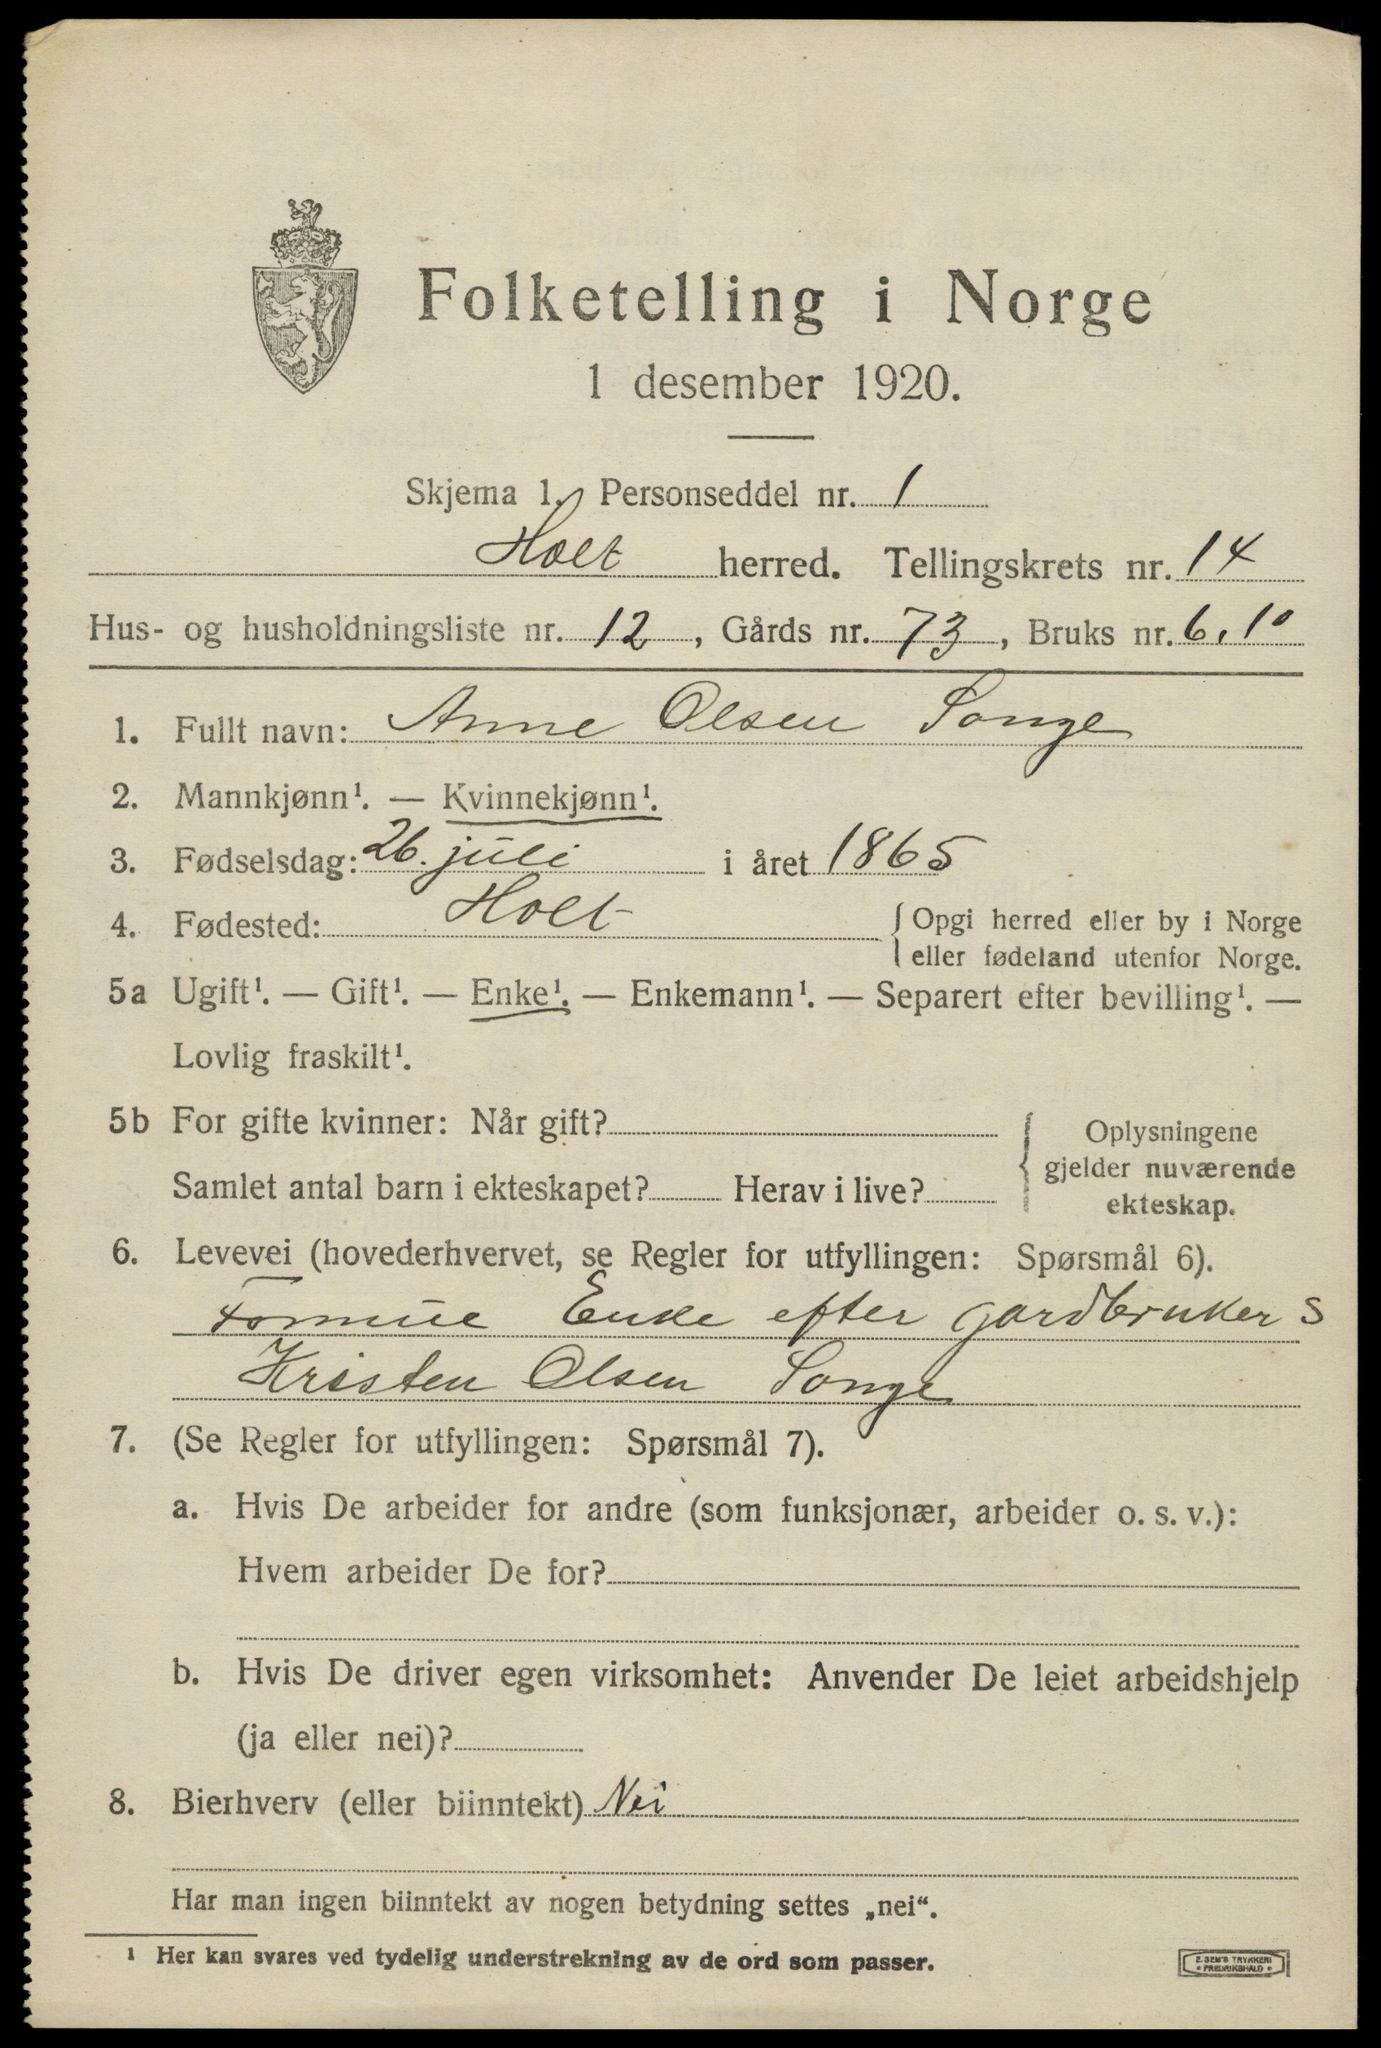 Folketelling i Norge
1 desember 1920.
Skjema 1. Personseddel nr. 1
Holt herred. Tellingskrets nr. 14
Hus- og husholdningsliste nr. 12, Gårds nr. 73, Bruks nr. 6,10
1. Fullt navn: Anne Olsen Songe
2. Mannkjønn¹. — Kvinnekjønn¹.
3. Fødselsdag: 26. juli i året 1865
4. Fødested: Holt { Opgi herred eller by i Norge
eller fødeland utenfor Norge.
5a Ugift¹. — Gift¹. — Enke¹. — Enkemann¹. — Separert efter bevilling¹. —
Lovlig fraskilt¹.
5b For gifte kvinner: Når gift? { Oplysningene
gjelder nuværende
Samlet antal barn i ekteskapet? Herav i live?
ekteskap.
6. Levevei (hovederhvervet, se Regler for utfyllingen: Spørsmål 6).
Formue Enke efter gardbruker S
Kristen Olsen Songe
7. (Se Regler for utfyllingen: Spørsmål 7).
a. Hvis De arbeider for andre (som funksjonær, arbeider o. s. v.):
Hvem arbeider De for?
b. Hvis De driver egen virksomhet: Anvender De leiet arbeidshjelp
(ja eller nei)?
8. Bierhverv (eller biinntekt) Nei
Har man ingen biinntekt av nogen betydning settes „nei“.
¹ Her kan svares ved tydelig understrekning av de ord som passer.
E. SEM'S TRYKKERI
• FREDRIKSHALD •